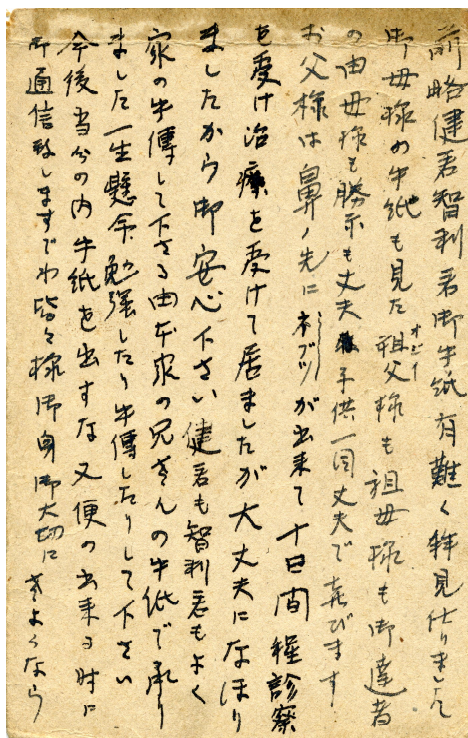 前略健君智利君御手紙有難く拝見仕りました
御母様の手紙も見た祖父様も祖母様も御達者
オジイ
の由母様も勝示も丈夫子供一同丈夫で喜びます
お父様は鼻ノ先にネブツが出来て十日間程診察
を受け治療を受けて居ましたが大丈夫になほり
ましたから御安心下さい健君も智利君もよく
家の手傳して下さる由本家の兄さんの手紙で承り
ました一生懸命勉強したり手傳したりして下さい
今後当分の内手紙を出すな又便の出来る時に
御通信致しますでわ皆々様御身御大切に さよなら